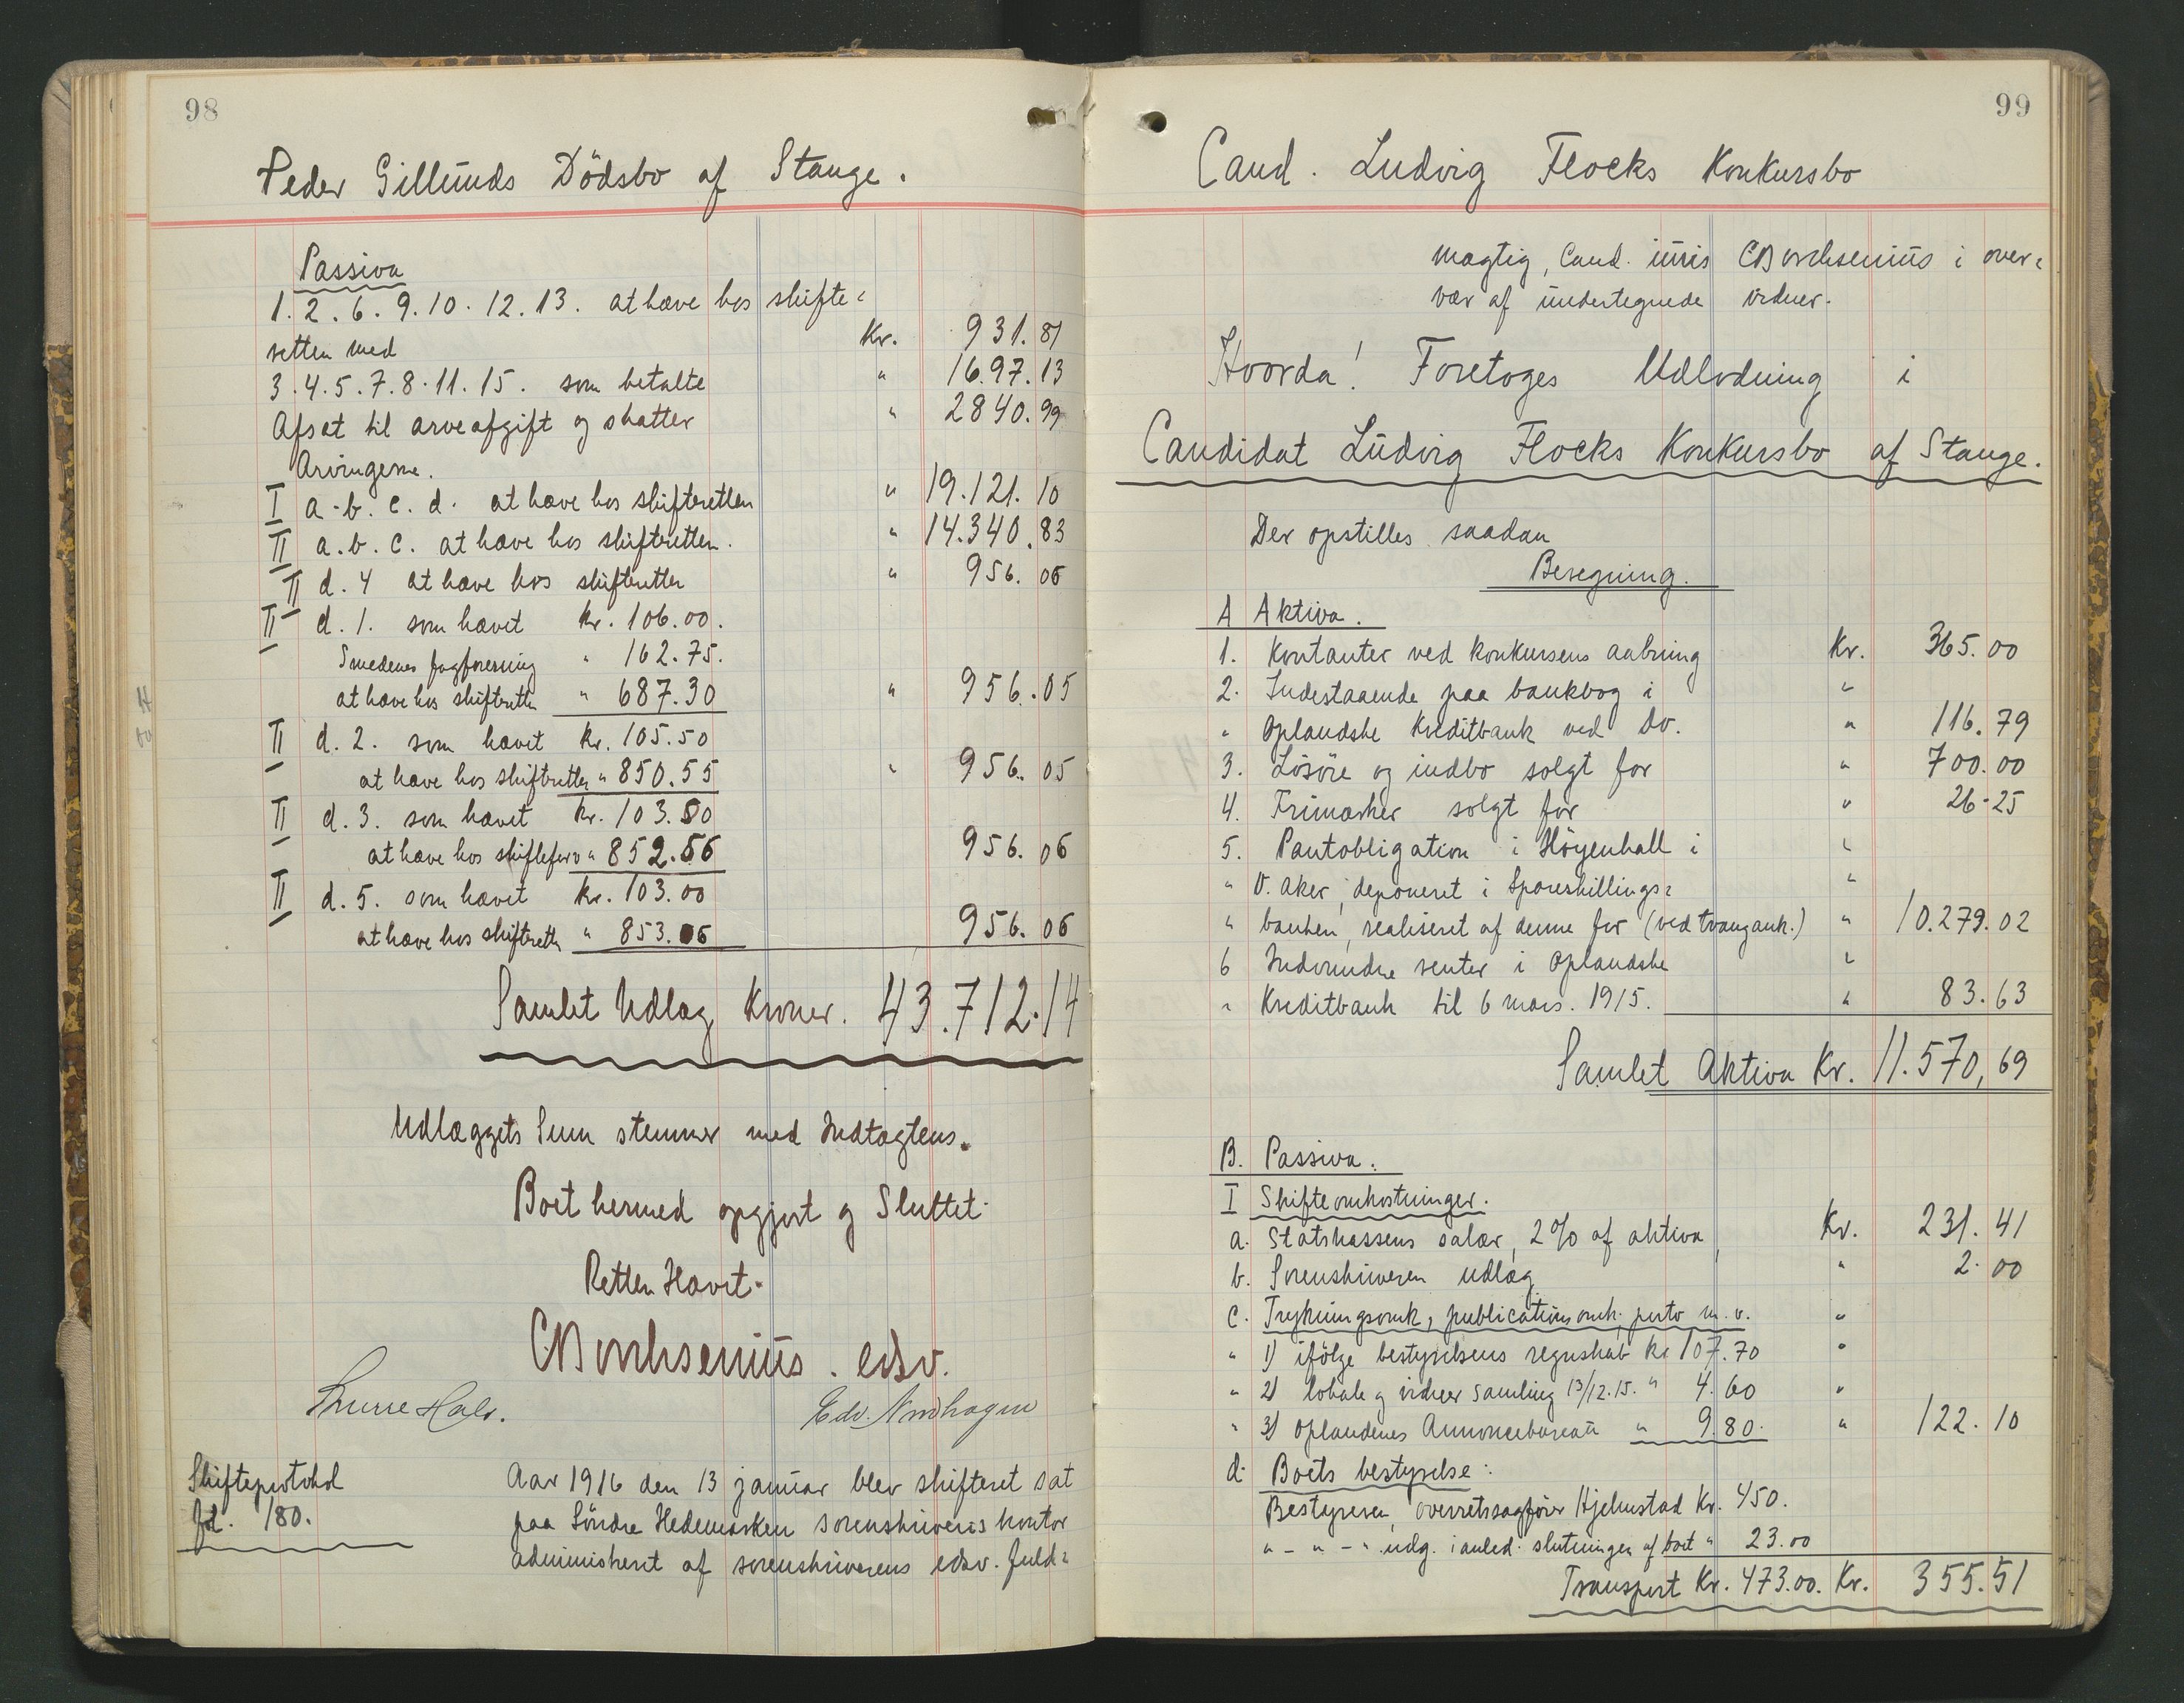 98
Peder Gillunds Dödsbo af Stange.
Passiva
1. 2. 6. 9. 10. 12. 13. at hæve hos skifte=
retten med Kr. 931.81
3. 4. 5. 7. 8. 11. 15. som betalte " 1697.13
Afsat til arveafgift og skatter " 2840.99
Arvingerne.
I a. b. c. d. at hæve hos skifteretten " 19.121.10
II a. b. c. at hæve hos skifteretten. " 14.340.83
II d. 4 at hæve hos skifteretten " 956.06
II d. 1. som hævet kr. 106.00.
Smedenes fagforening " 162.75.
at hæve hos skifteretten " 687.30 " 956.05
II d. 2. som hævet kr. 105.50
at hæve hos skifteretten " 850.55 " 956.05
II d. 3. som hævet kr. 103.50
at hæve hos skifteforv " 852.56 956.06
II d. 5. som hævet kr. 103.00
at hæve hos skifteretten " 853.06 956.06
Samlet Udlæg Kroner. 43.712.14
Udlæggets Sum stemmer med Indtægtens.
Boet hermed opgjort og Sluttet.
Retten Hævet.
CBorchsenius. edsv.
Edv. Nordhagen
Skifteprotokol
fol. 180.
Aar 1916 den 13 januar blev skifteret sat
paa Söndre Hedemarken sorenskriveris kontor
administreret af sorenskriverens edsv. fuld=
99
Cand. Ludvig Flocks Konkursbo
mægtig, Cand. iuris CBorchsenius i over=
vær af undertegnede vidner.
Hvorda! Foretoges Udlodning i
Candidat Ludvig Flocks Konkursbo af Stange.
Der opstilles saadan
Beregning.
A Aktiva.
1. Kontanter ved konkursens aabning Kr. 365.00
2. Indestaaende paa bankbog i "
" Oplandske Kreditbank ved Do. " 116.79
3. Lösöre og indbo solgt for " 700.00
4. Frimærker solgt for " 26.25
5. Pantobligation i Höyenhall i "
" V. Aker, deponeret i Spareskillings= "
" banken, realiseret af denne for (ved tvangauk.) " 10.279.02
6 Indvundne renter i Oplandske "
" Kreditbank til 6 mars. 1915. " 83.63
Samlet Aktiva Kr. 11.570,69
B. Passiva.
I Skifteomkostninger.
a. Statskassens salær, 2% af aktiva, Kr. 231.41
b. Sorenskriveren udlæg " 2.00
c. Trykningsomk, publicationsomk. porto m. v. "
" 1) ifölge bestyrelsens regnskab kr 107.70 "
" 2) lokale og vidner samling 13/12.15. " 4.60 "
" 3) Oplandenes Annoncebureau " 9.80. " 122.10
d. Boets bestyrelse:
Bestyreren, overretssagförer Hjelmstad Kr. 450.
" - " - " udg. i anled. slutningen af boet " 23.00
Transport Kr. 473.00. Kr. 355.51